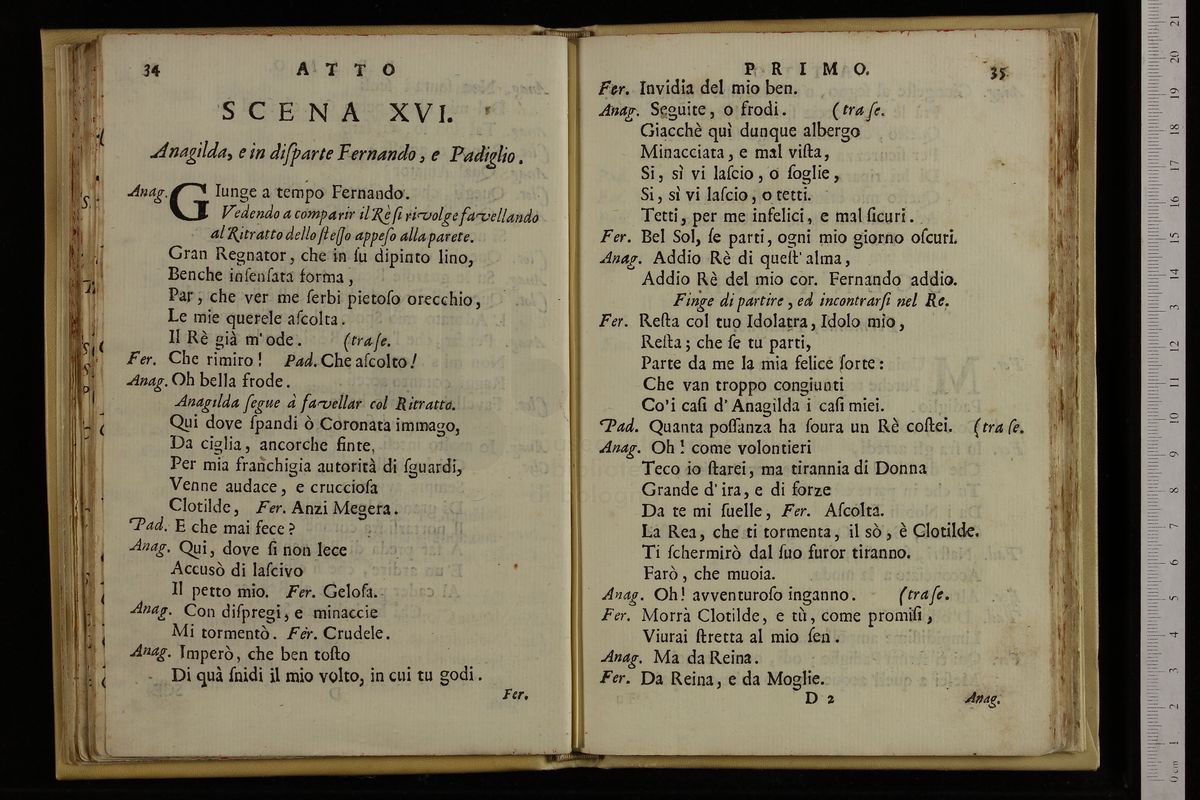 34 ATTO
SCENA XVI.
Anagilda, e in diſparte Fernando, e Padiglio.
Anag. GIunge a tempo Fernando.
Vedendo a comparir il Rè ſi rivolge favellando
al Ritratto dello ſteſſo appeſo alla parete.
Gran Regnator, che in ſu dipinto lino,
Benche inſenſata forma,
Par, che ver me ſerbi pietoſo orecchio,
Le mie querele aſcolta.
Il Rè già m'ode. (tra ſe.
Fer. Che rimiro! Pad. Che aſcolto!
Anag. Oh bella frode.
Anagilda ſegue à favellar col Ritratto.
Qui dove ſpandi ò Coronata immago,
Da ciglia, ancorche finte,
Per mia franchigia autorità di ſguardi,
Venne audace, e crucciofa
Clotilde, Fer. Anzi Megera.
Pad. E che mai fece?
Anag. Qui, dove ſi non lece
Accusò di laſcivo
Il petto mio. Fer. Geloſa.
Anag. Con diſpregi, e minaccie
Mi tormentò. Fer. Crudele.
Anag. Imperò, che ben toſto
Di quà ſnidi il mio volto, in cui tu godi.
Fer.
PRIMO. 35
Fer. Invidia del mio ben.
Anag. Seguite, o frodi. (tra ſe.
Giacchè quì dunque albergo
Minacciata, e mal viſta,
Si, sì vi laſcio, o ſoglie,
Si, sì vi laſcio, o tetti.
Tetti, per me infelici, e mal ſicuri.
Fer. Bel Sol, ſe parti, ogni mio giorno oſcuri.
Anag. Addio Rè di queſt' alma,
Addio Rè del mio cor. Fernando addio.
Finge di partire, ed incontrarſi nel Re.
Fer. Reſta col tuo Idolatra, Idolo mio,
Reſta; che ſe tu parti,
Parte da me la mia felice ſorte:
Che van troppo congiunti
Co'i caſi d' Anagilda i caſi miei.
Pad. Quanta poſſanza ha ſoura un Rè coſtei. (tra ſe.
Anag. Oh! come volontieri
Teco io ſtarei, ma tirannia di Donna
Grande d' ira, e di forze
Da te mi ſuelle, Fer. Aſcolta.
La Rea, che ti tormenta, il sò, è Clotilde.
Ti ſchermirò dal ſuo furor tiranno.
Farò, che muoia.
Anag. Oh! avventuroſo inganno. (tra ſe.
Fer. Morrà Clotilde, e tù, come promiſi,
Viurai ſtretta al mio ſen.
Anag. Ma da Reina.
Fer. Da Reina, e da Moglie.
D 2 Anag.